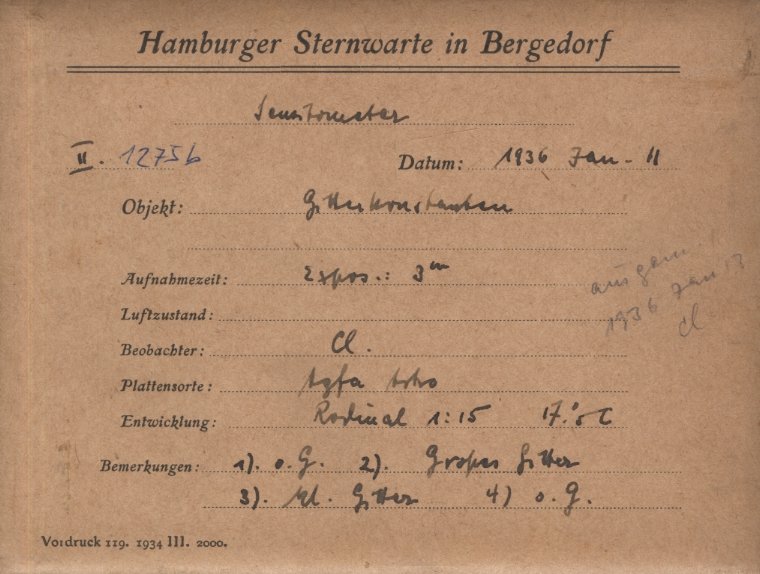 Hamburger Sternwarte in Bergedorf
Sensitometer
II. 12756
Datum: 1936 Jan. 11
Objekt: Gitterkonstanten
Aufnahmezeit: Expos.: 3m
Luftzustand:
Beobachter: Cl.
Plattensorte: Agfa Astro
Entwicklung: Rodinal 1:15 17.°5 C
Bemerkungen: 1). o.G. 2). Grosses Gitter
3). Kl. Gitter 4) o.G.
1936 Jan
Cl
Vordruck 119. 1934 III. 2000.